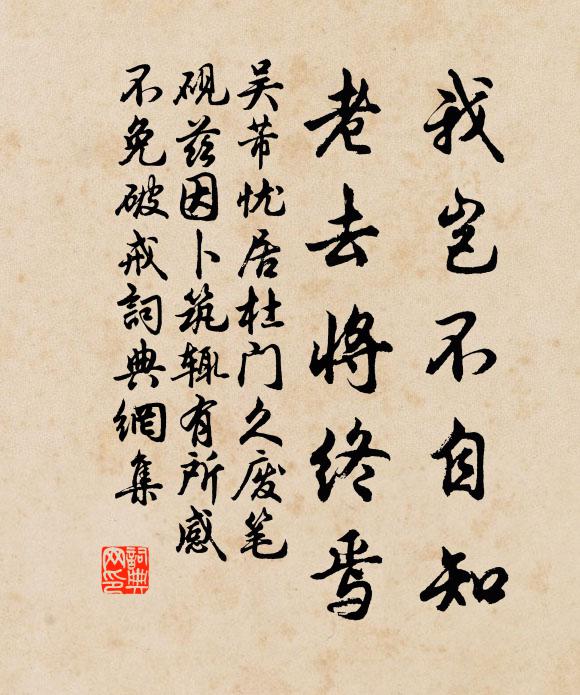 我岂不自知
老去将终焉
吴芾忧居杜门久废笔
砚兹因卜筑辄有所感
不免破戒詞典網集
詞典网印